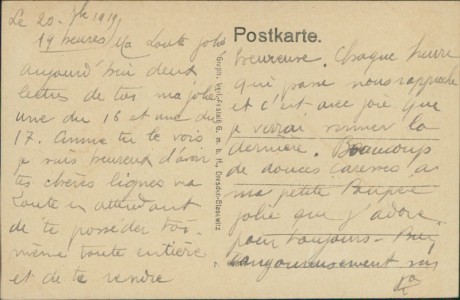 Le 20. 1919.
19 heures / Ma toute jolie
aujourd'hui deux
lettres de toi ma jolie
une du 16 et une du
17. Comme tu le vois
je suis heureux d'avoir
tes chères lignes ma
toute en attendant
de te posséder toi-
même toute entière
et de te rendre
Postkarte.
heureuse. Chaque heure
qui passe nous rapproche
et c'est avec joie que
je verrai sonner la
dernière. Beaucoup
de douces caresses à
ma petite Poupée
jolie que j'adore
pour toujours -
langoureusement